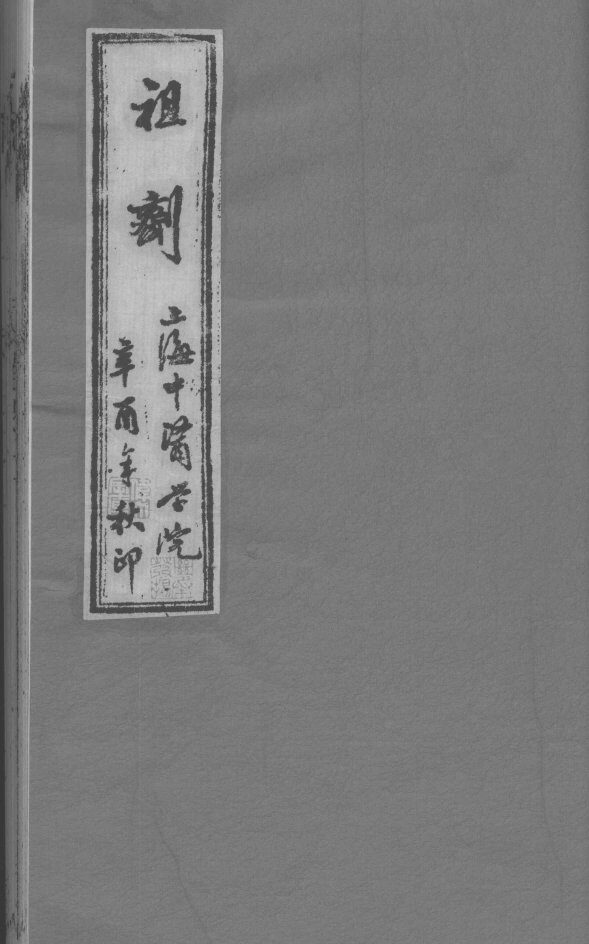 祖劑
上海中医学院
辛酉年秋印